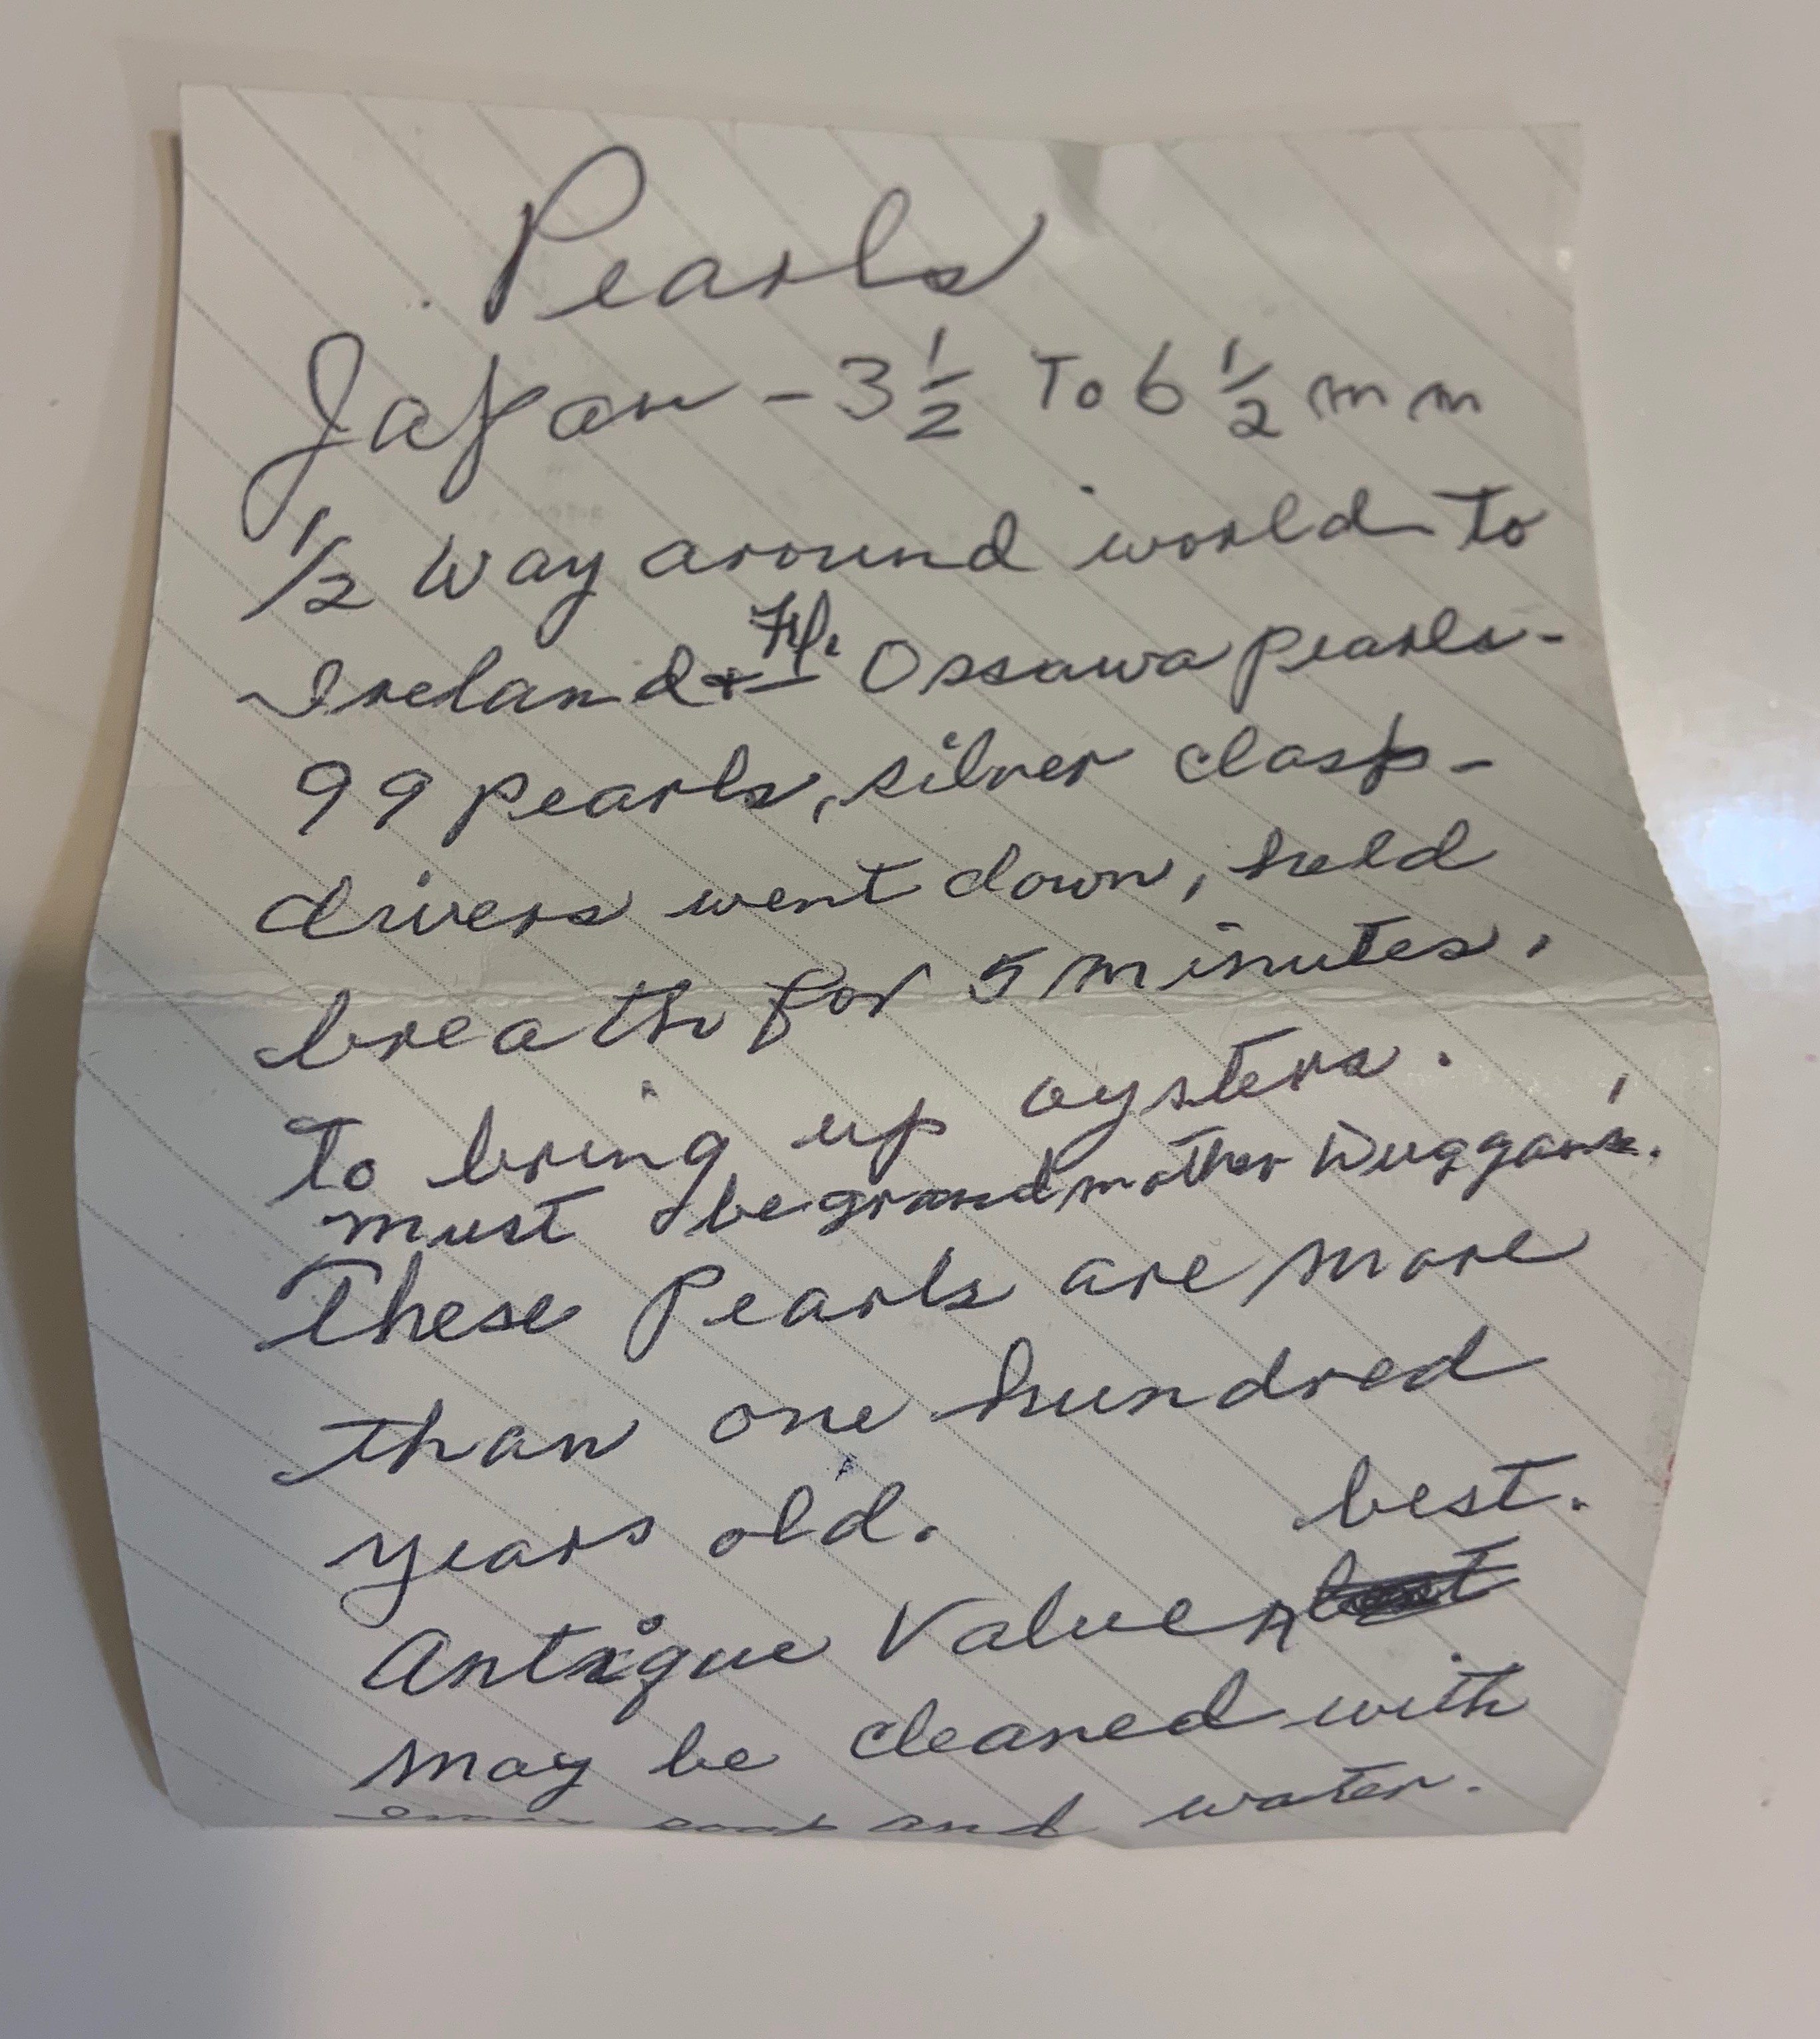 Pearls
Japan - 3 1/2 To 6 1/2 mm
1/2 Way around world to
Ireland + Fl. Ossawa pearls -
99 pearls, silver clasp -
drivers went down, held
breath for 5 minutes,
To bring up oysters.
must be grandmother Duggan's.
These Pearls are more
than one hundred
years old.
best.
Antique Value
may be cleaned with
soap and water.